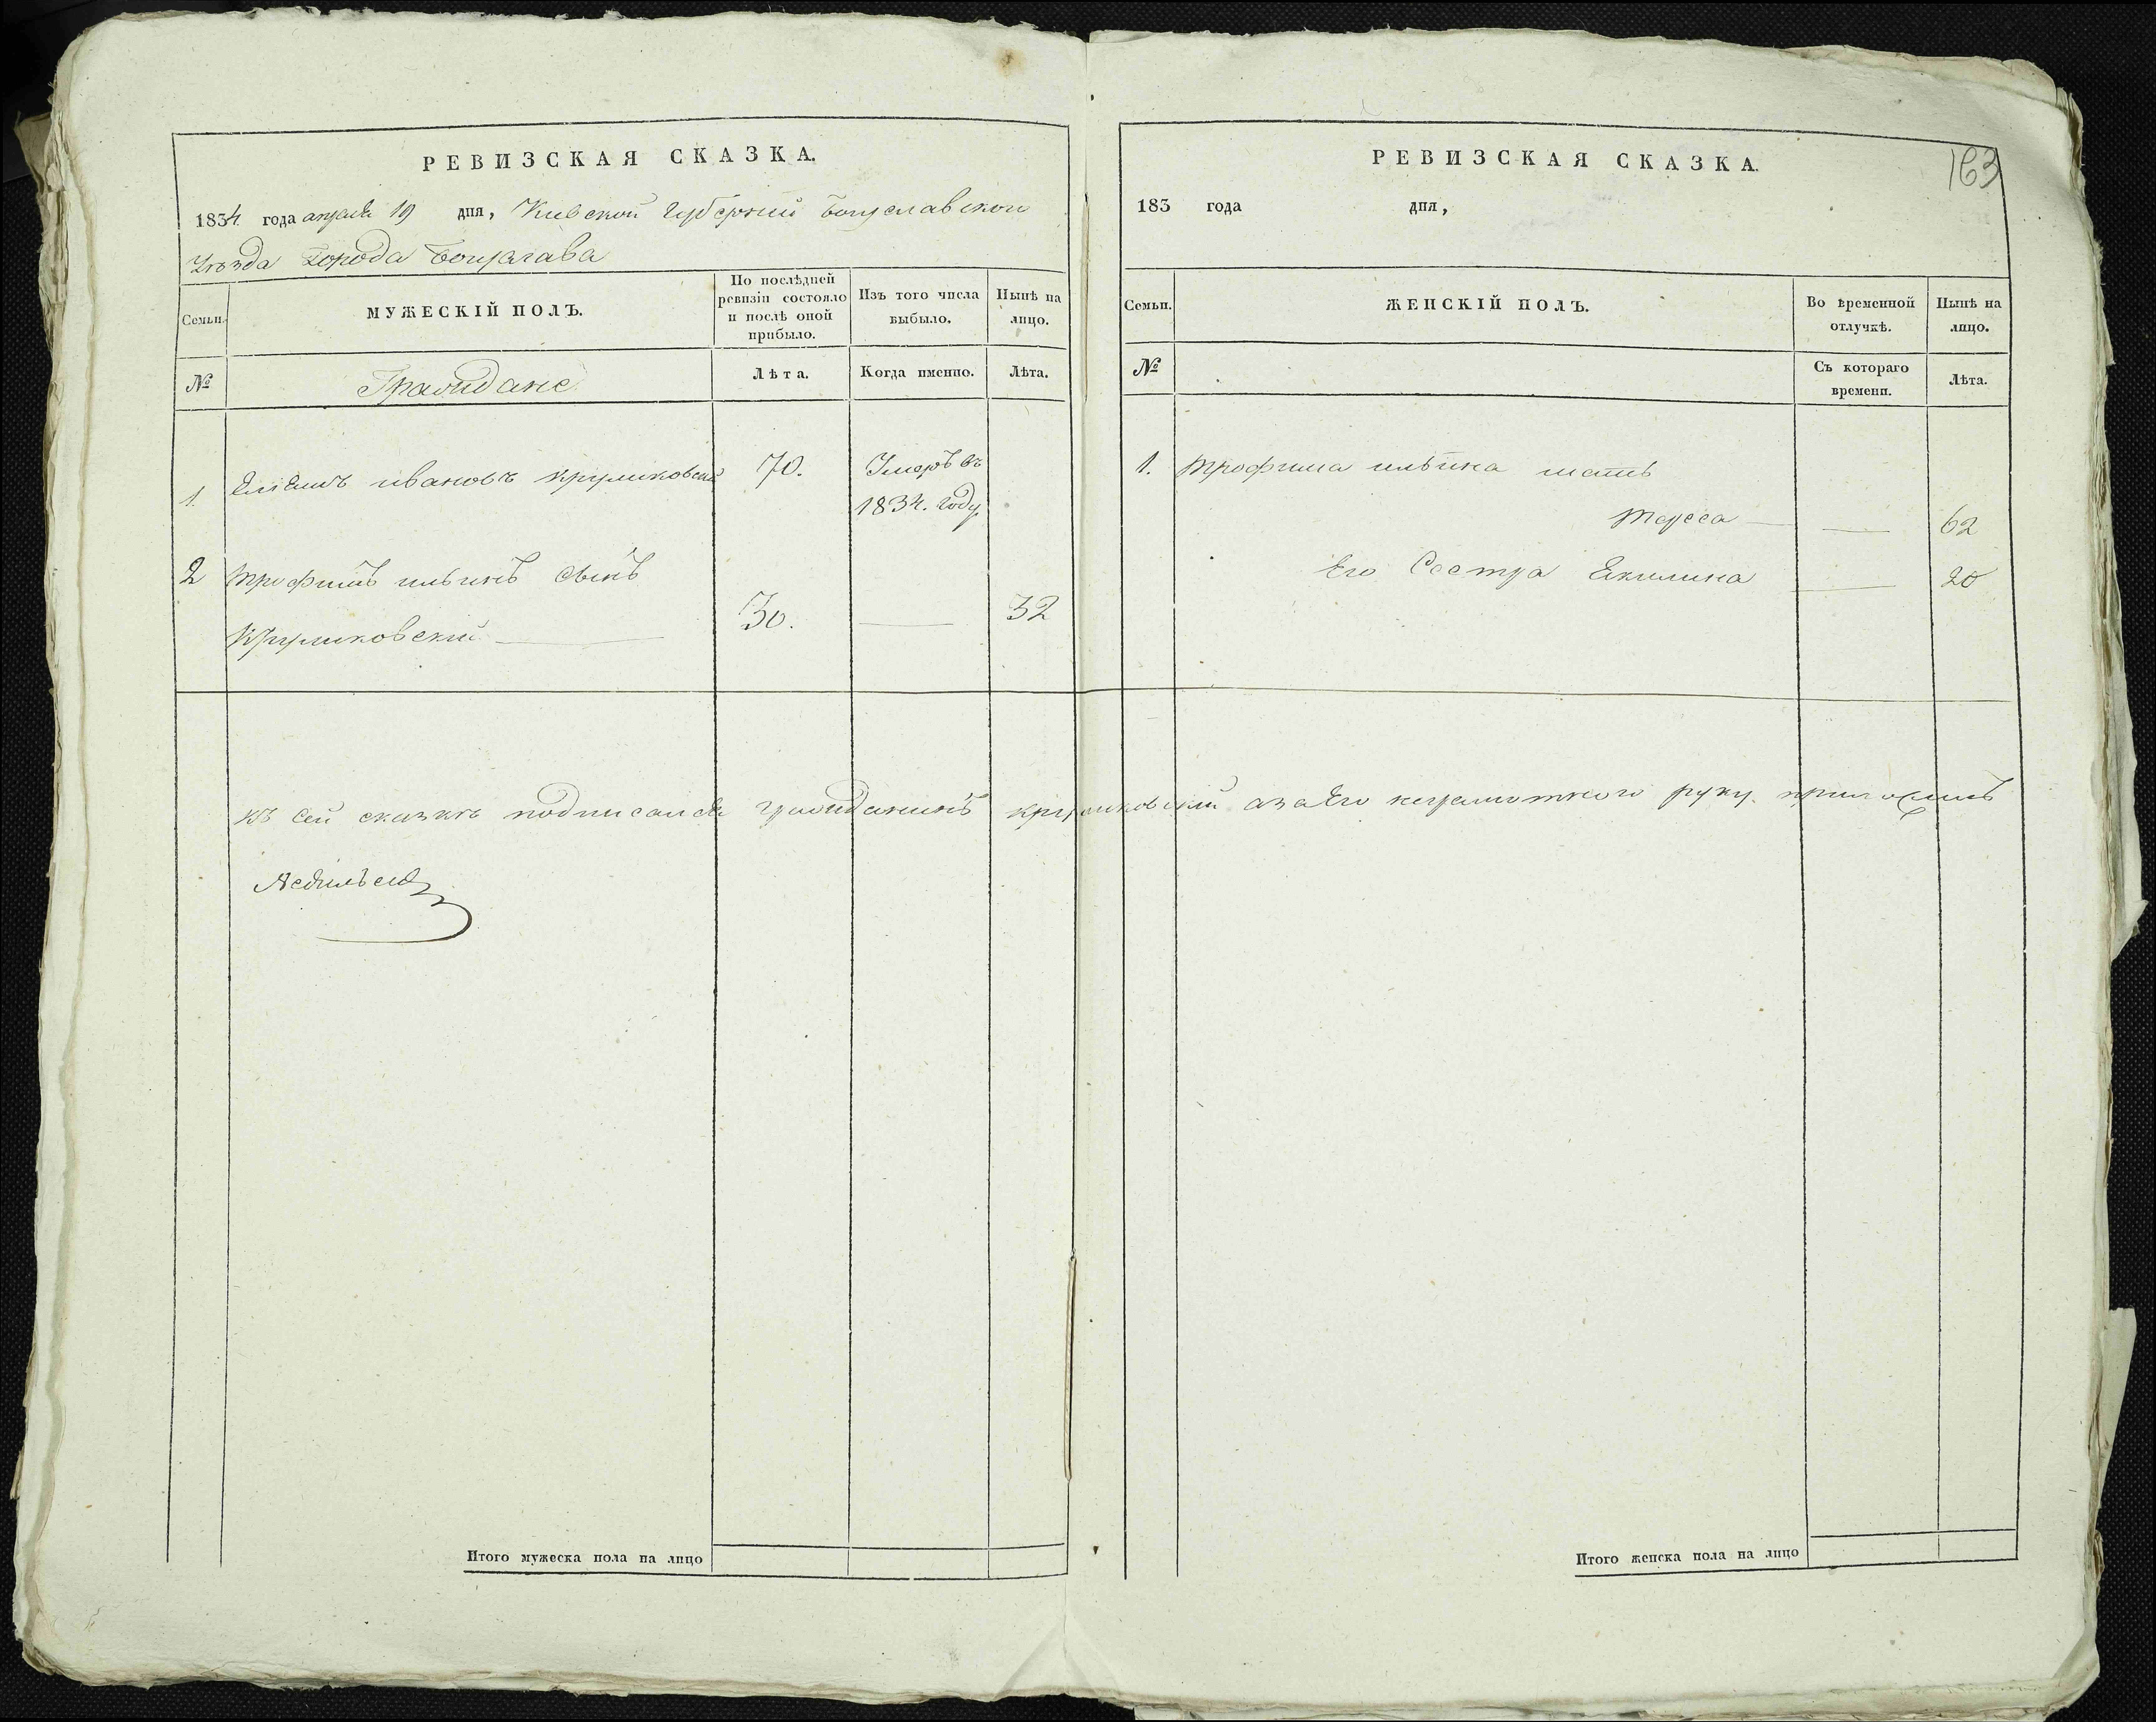 РЕВИЗСКАЯ СКАЗКА.
1834 года апреля 19 дня, Киевской Губернии Богуславского
Уезда Города Богуслава
Семьи.
МУЖЕСКІЙ ПОЛЪ.
По послѣдней ревизіи состояло и послѣ оной прибыло.
Изъ того числа выбыло.
Нынѣ на лицо.
№
Граждане
Лѣта.
Когда именно.
Лѣта.
1. Ивановъ 70. Умеръ въ
1834. году
2 Трофимъ Ильинъ Сынъ
Круликовский 30. 32
Къ сей сказкѣ подписался гражданинъ Круликовский а за его неграмотного руку приложилъ
Итого мужеска пола на лицо
163
РЕВИЗСКАЯ СКАЗКА.
183 года дня,
Семьи.
ЖЕНСКІЙ ПОЛЪ.
Во временной отлучкѣ.
Нынѣ на лицо.
№
Съ котораго времени.
Лѣта.
1. Трофима Ильина мать
62
Его Сестра Акилина 20
Итого женска пола на лицо